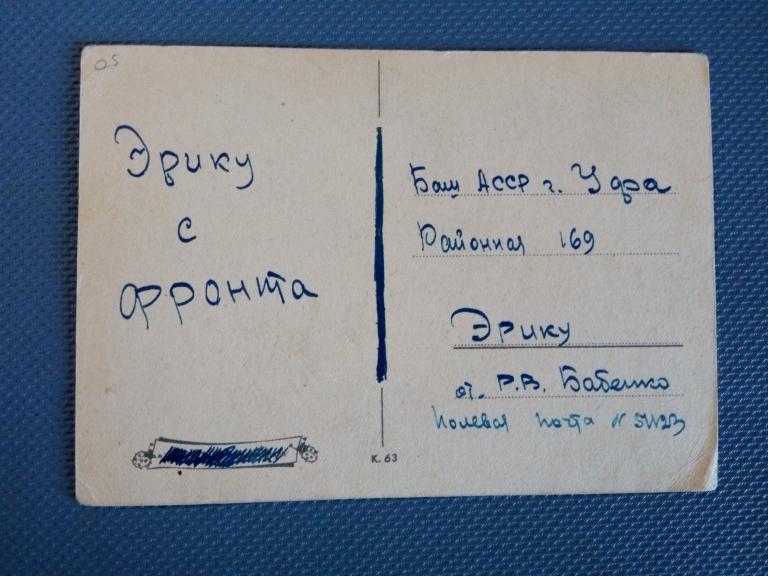 05
Эрику
с
фронта
Баш АССР г. Уфа
Районная 169
Эрику
от Р.В. Бабенко
Полевая почта N
К. 63